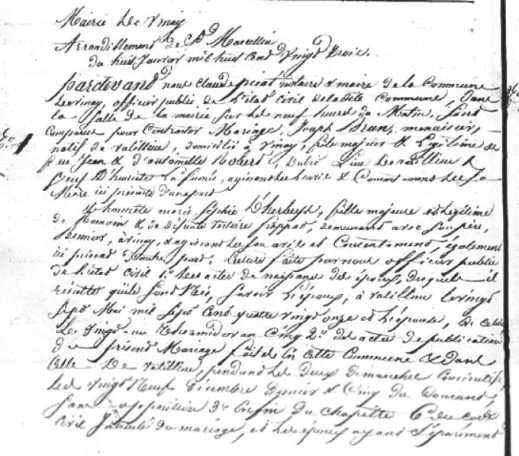 Mairie de Vinay
Arrondissement de St Marcellin
du huit Janvier mil huit cent vingt trois.
Pardevant nous Claude notaire & maire de la Commune
de Vinay, officier public de l'état civil de ladite Commune, dans
la salle de la mairie sur les neuf heures du Matin, sont
Comparus pour Contracter Mariage, Joseph Brun, menuisier,
natif de Vatilieu, domicilié à Vinay, fils majeur & légitime de
feu Jean & d'
veuf d' la fumée, agissant de l'avis & Consentement de sa
Mère ici présente d'une part
Et marie Sophie fille majeure & légitime
de & de défunte Victoire demeurant avec son père,
à Vinay, & agissant de son avis et Consentement, également
ici présent d'autre part; Lecture faite par nous officier public
de l'état civil 1° des actes de naissance des époux, desquels il
résulte qu'ils sont nés, savoir l'époux, à Vatilieu le vingt
sept Mai mil sept cent quatre vingt onze et l'épouse,
le vingt un thermidor an cinq 2° de l'acte de publication
du présent Mariage faite en cette Commune & dans
Celle de Vatilieu, pendant les deux dimanches Consécutifs,
les vingt neuf décembre dernier & Cinq du Courant,
sans opposition 3° Enfin du chapitre 6e du code
Civil Intitulé du mariage, et les époux ayant Séparément